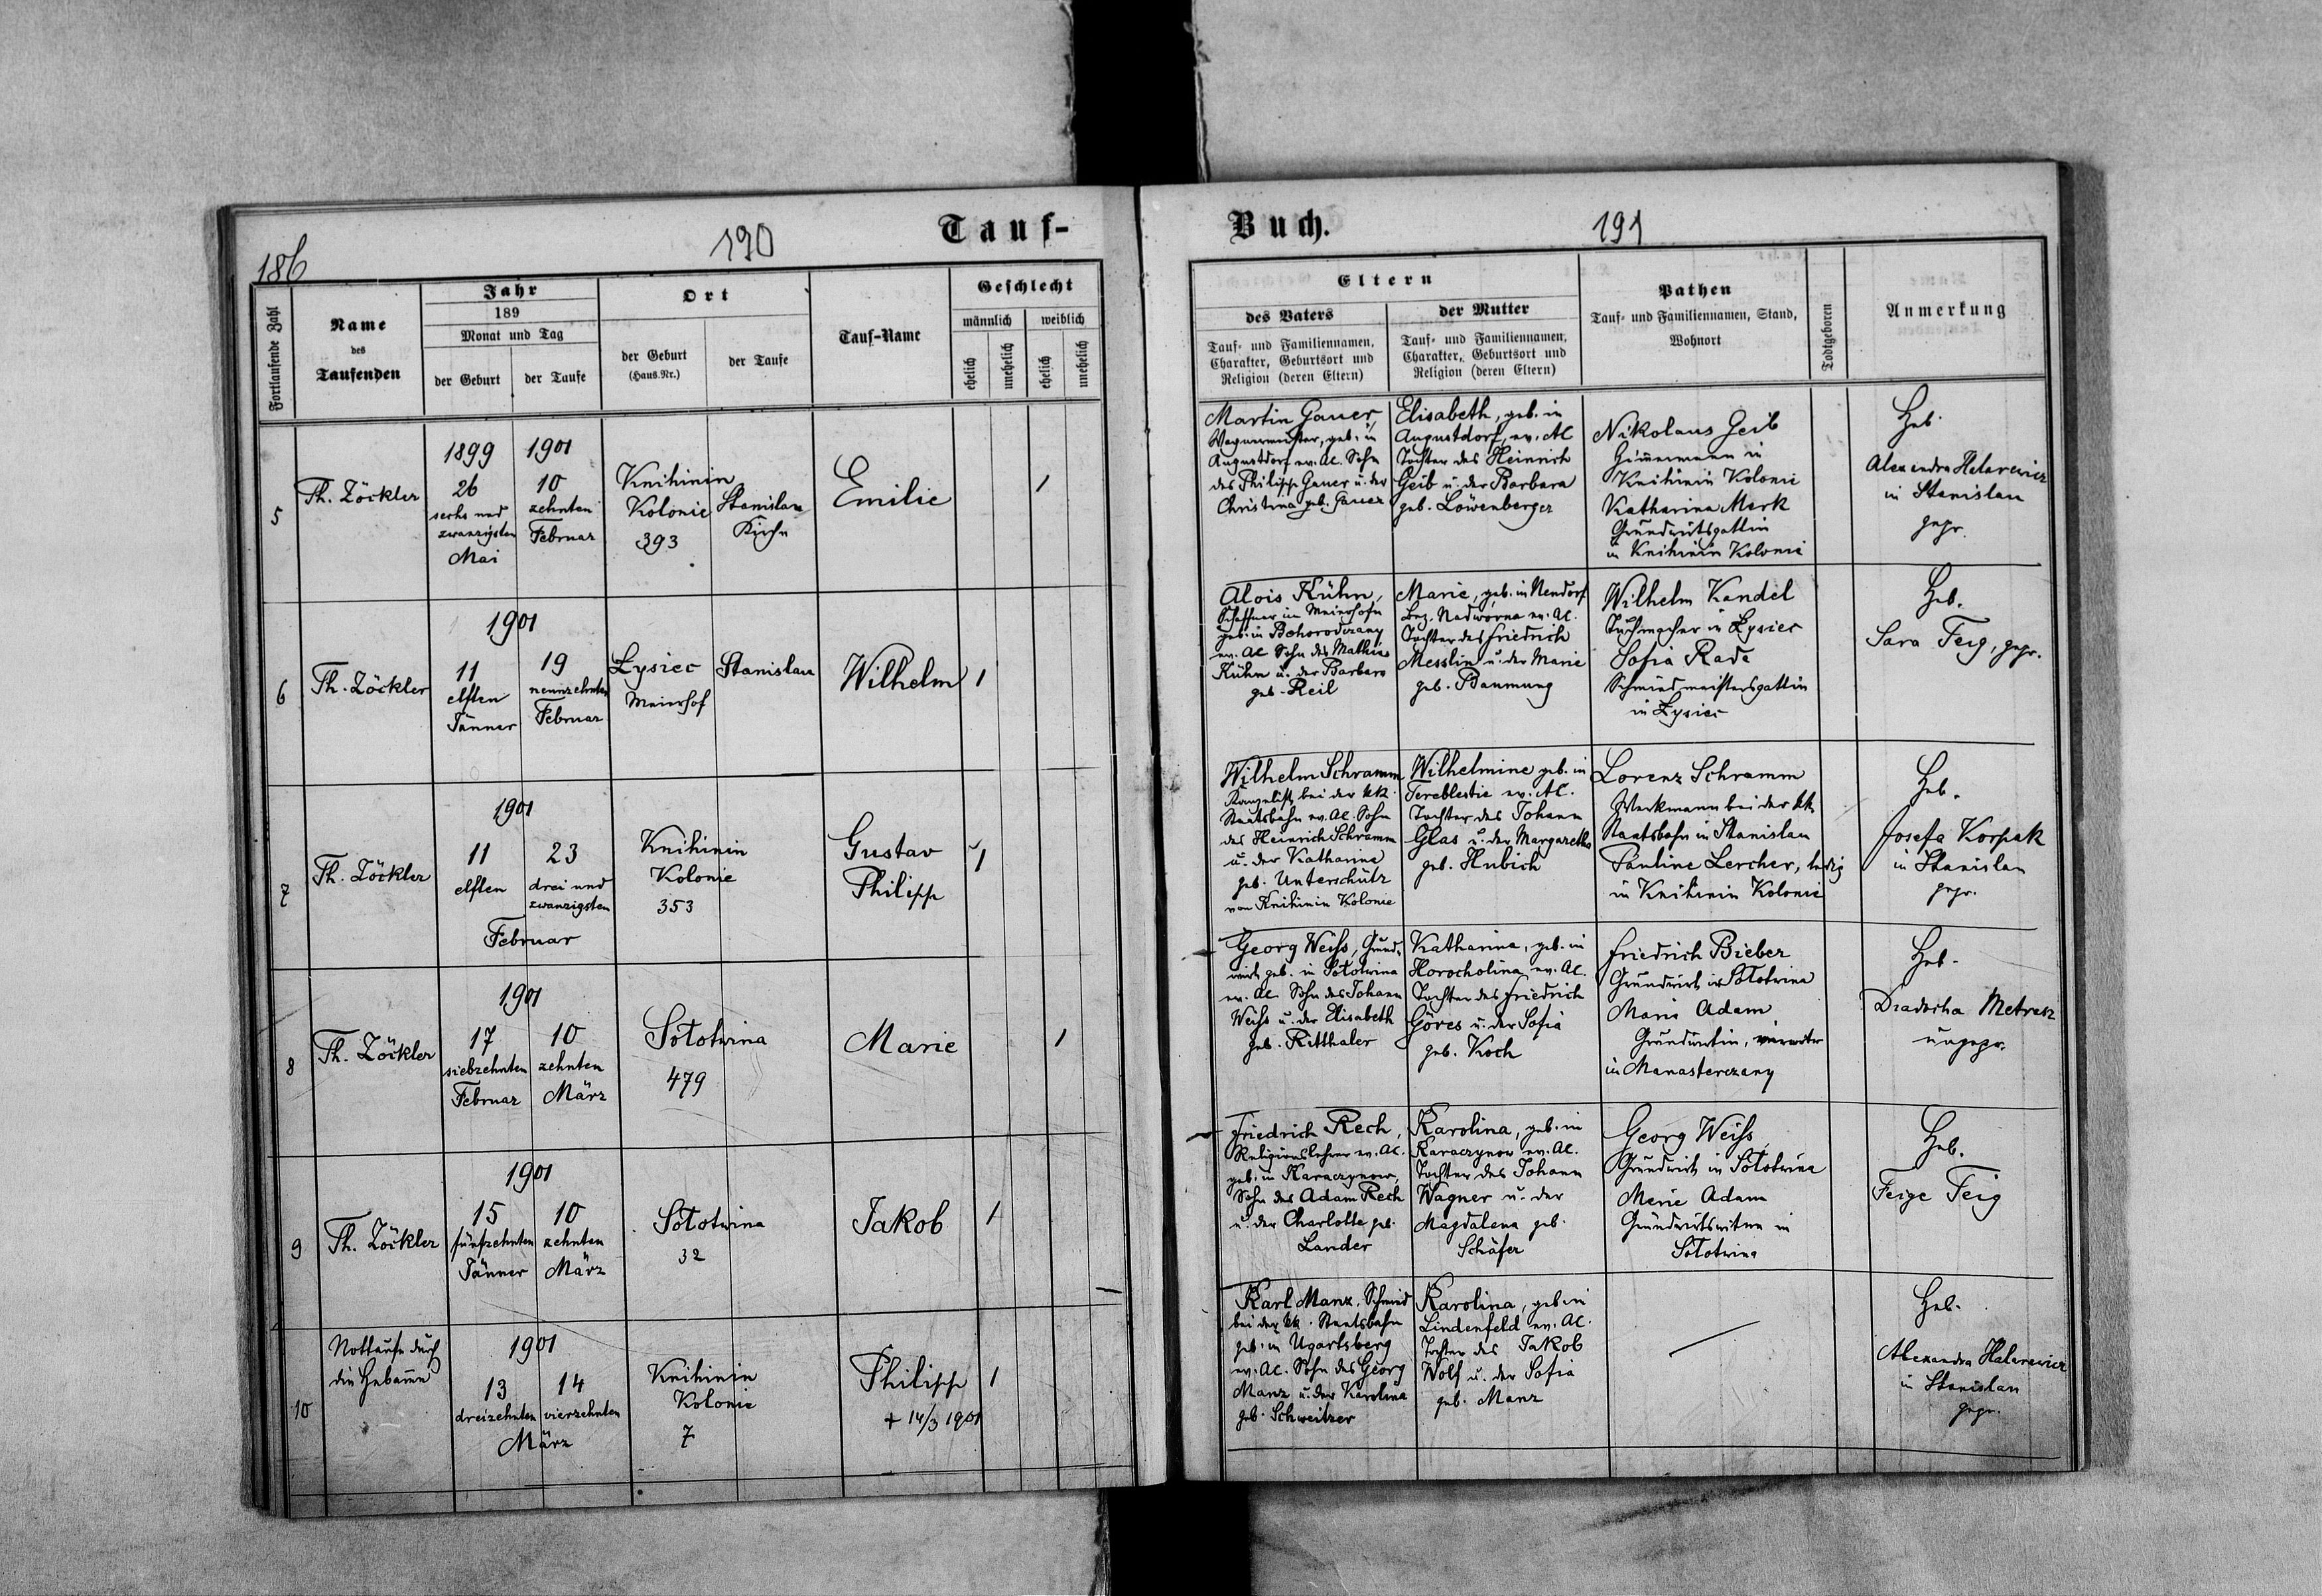 186
190
Tauf-
Fortlaufende Zahl
Name
des
Taufenden
Jahr
189
Monat und Tag
der Geburt
der Taufe
Ort
der Geburt
(Haus-Nr.)
der Taufe
Tauf-Name
Geschlecht
männlich
weiblich
ehelich
unehelich
ehelich
unehelich
5
Th. Zöckler
1899
26
sechs und
zwanzigsten
Mai
1901
10
zehnten
Februar
Knihinin
Kolonie
393
Stanislau
Kirche
Emilie
1
6
Th. Zöckler
1901
11
elften
Jänner
19
neunzehnten
Februar
Łysiec
Meierhof
Stanislau
Wilhelm
1
7
Th. Zöckler
1901
11
elften
23
drei und
zwanzigsten
Februar
Knihinin
Kolonie
353
Gustav
Philipp
1
8
Th. Zöckler
1901
17
siebzehnten
Februar
10
zehnten
März
Sołotwina
479
Marie
1
9
Th. Zöckler
1901
15
fünfzehnten
Jänner
10
zehnten
März
Sołotwina
32
Jakob
1
10
Nottaufe durch
die Hebamme
1901
13
dreizehnten
14
vierzehnten
März
Knihinin
Kolonie
7
Philipp
+ 14/3 1901
1
Buch.
191
Eltern
des Vaters
Tauf- und Familiennamen,
Charakter, Geburtsort und
Religion (deren Eltern)
der Mutter
Tauf- und Familiennamen,
Charakter, Geburtsort und
Religion (deren Eltern)
Pathen
Tauf- und Familiennamen, Stand,
Wohnort
Todtgeboren
Anmerkung
Martin Gauer,
Wagnermeister, geb. in
Augustdorf ev. AC. Sohn
des Philipp Gauer u. der
Christina geb. Gauer
Elisabeth, geb. in
Augustdorf, ev. AC
Tochter des Heinrich
Geib u. der Barbara
geb. Löwenberger
Nikolaus Geib
Zimmermann in
Knihinin Kolonie
Katharina Mark
Grundwirtsgattin
in Knihinin Kolonie
Heb.
Alexandra Halarewicz
in Stanislau
gepr.
Alois Kühn,
Schaffner im Meierhofe
geb. in Bohorodczany
ev. AC Sohn des Mathias
Kühn u. der Barbara
geb. Reil
Marie, geb. in Neudorf
Bez. Nadworna ev. AC.
Tochter des Friedrich
Messlin u. der Marie
geb. Baumung
Wilhelm Kandel
Tuchmacher in Łysiec
Sofia Rade
Schmiedmeistersgattin
in Łysiec
Heb.
Sara Feig, gepr.
Wilhelm Schramm
Kanzelist bei der kk.
Staatsbahn ev. AC. Sohn
des Heinrich Schramm
u. der Katharina
geb. Unterschütz
von Knihinin Kolonie
Wilhelmine geb. in
Tereblestie ev. AC.
Tochter des Johann
Glas u. der Margaretha
geb. Hubich
Lorenz Schramm
Werkmann bei der kk
Staatsbahn in Stanislau
Pauline Lercher, ledig
in Knihinin Kolonie
Heb.
Josefa Korpak
in Stanislau
gepr.
Georg Weiss, Grund-
wirt geb. in Sołotwina
ev. AC. Sohn des Johann
Weiss u. der Elisabeth
geb. Ritthaler
Katharina, geb. in
Horocholina ev. AC.
Tochter des Friedrich
Göres u. der Sofia
geb. Koch
Friedrich Bieber
Grundwirt in Sołotwina
Maria Adam
Grundwirtin,
in Manasterczany
Heb.
Metrasz
ungepr.
Friedrich Rech,
Religionslehrer ev. AC.
geb. in Karaczynow,
Sohn des Adam Rech
u. der Charlotte geb.
Lander
Karolina, geb. in
Karaczynow ev. AC.
Tochter des Johann
Wagner u. der
Magdalena geb.
Schäfer
Georg Weiss,
Grundwirt in Sołotwina
Marie Adam
Grundwirtswitwe in
Sołotwina
Heb.
Feige Feig
Karl Manz, Schmied
bei der kk. Staatsbahn
geb. in Ugartsberg
ev. AC. Sohn des Georg
Manz u. der Karolina
geb. Schweitzer
Karolina, geb. in
Lindenfeld ev. AC.
Tochter des Jakob
Wolf u. der Sofia
geb. Manz
Heb.
Alexandra Halarewicz
in Stanislau
gepr.